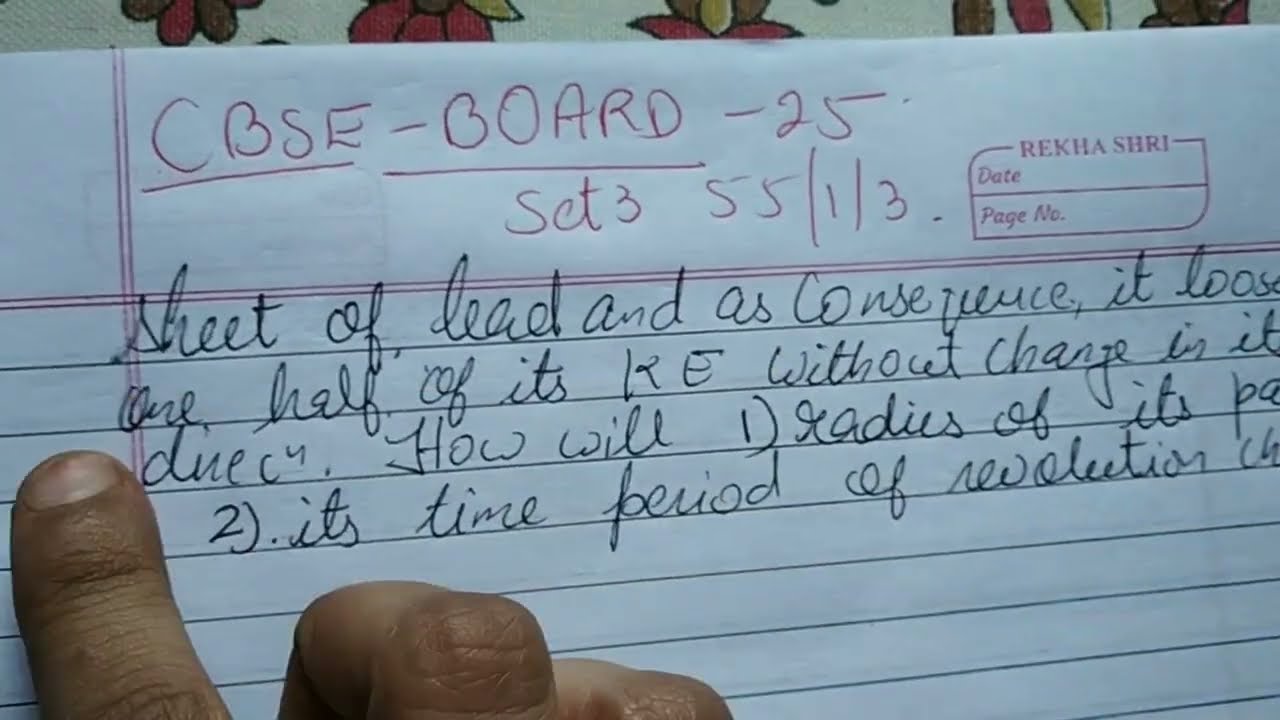 CBSE - BOARD - 25
REKHA SHRI
Date
Set 3 55/1/3.
Page No.
sheet of lead and as Consequence, it loose
one half of its KE without change in it
direcⁿ. How will 1) radius of its pa
2). its time period of revolution ch